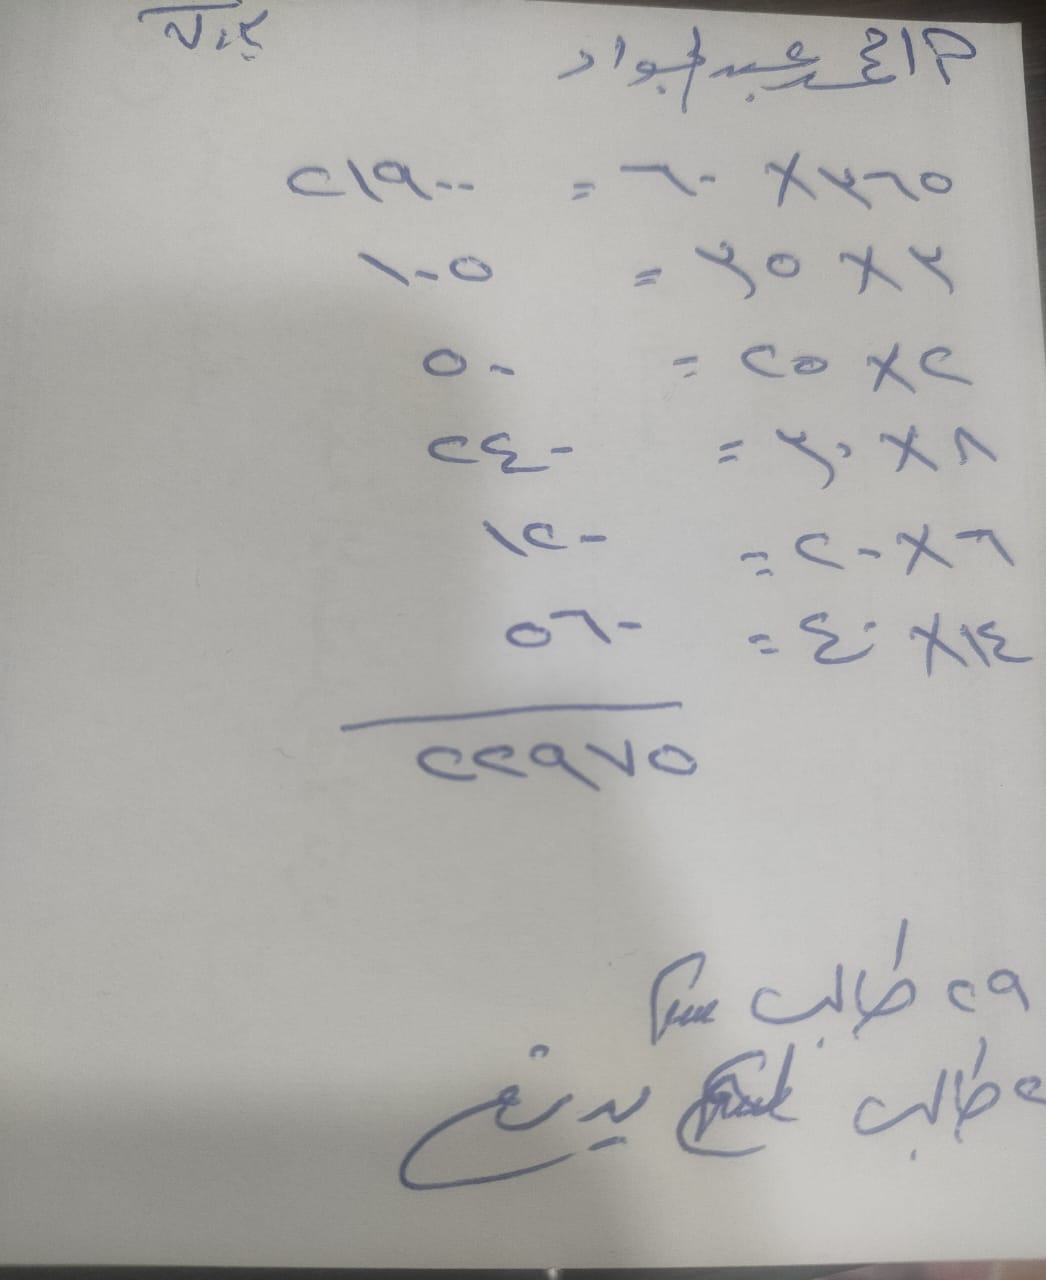 عبدالجواد
٣٦٥ × ٦٠ = ٢١٩٠٠
٣ × ٣٥ = ١٠٥
٢ × ٢٥ = ٥٠
٨ × ٣٠ = ٢٤٠
٦ × ٢٠ = ١٢٠
١٤ × ٤٠ = ٥٦٠
٢٢٩٧٥
٢٩ طالب
طالب يدفع